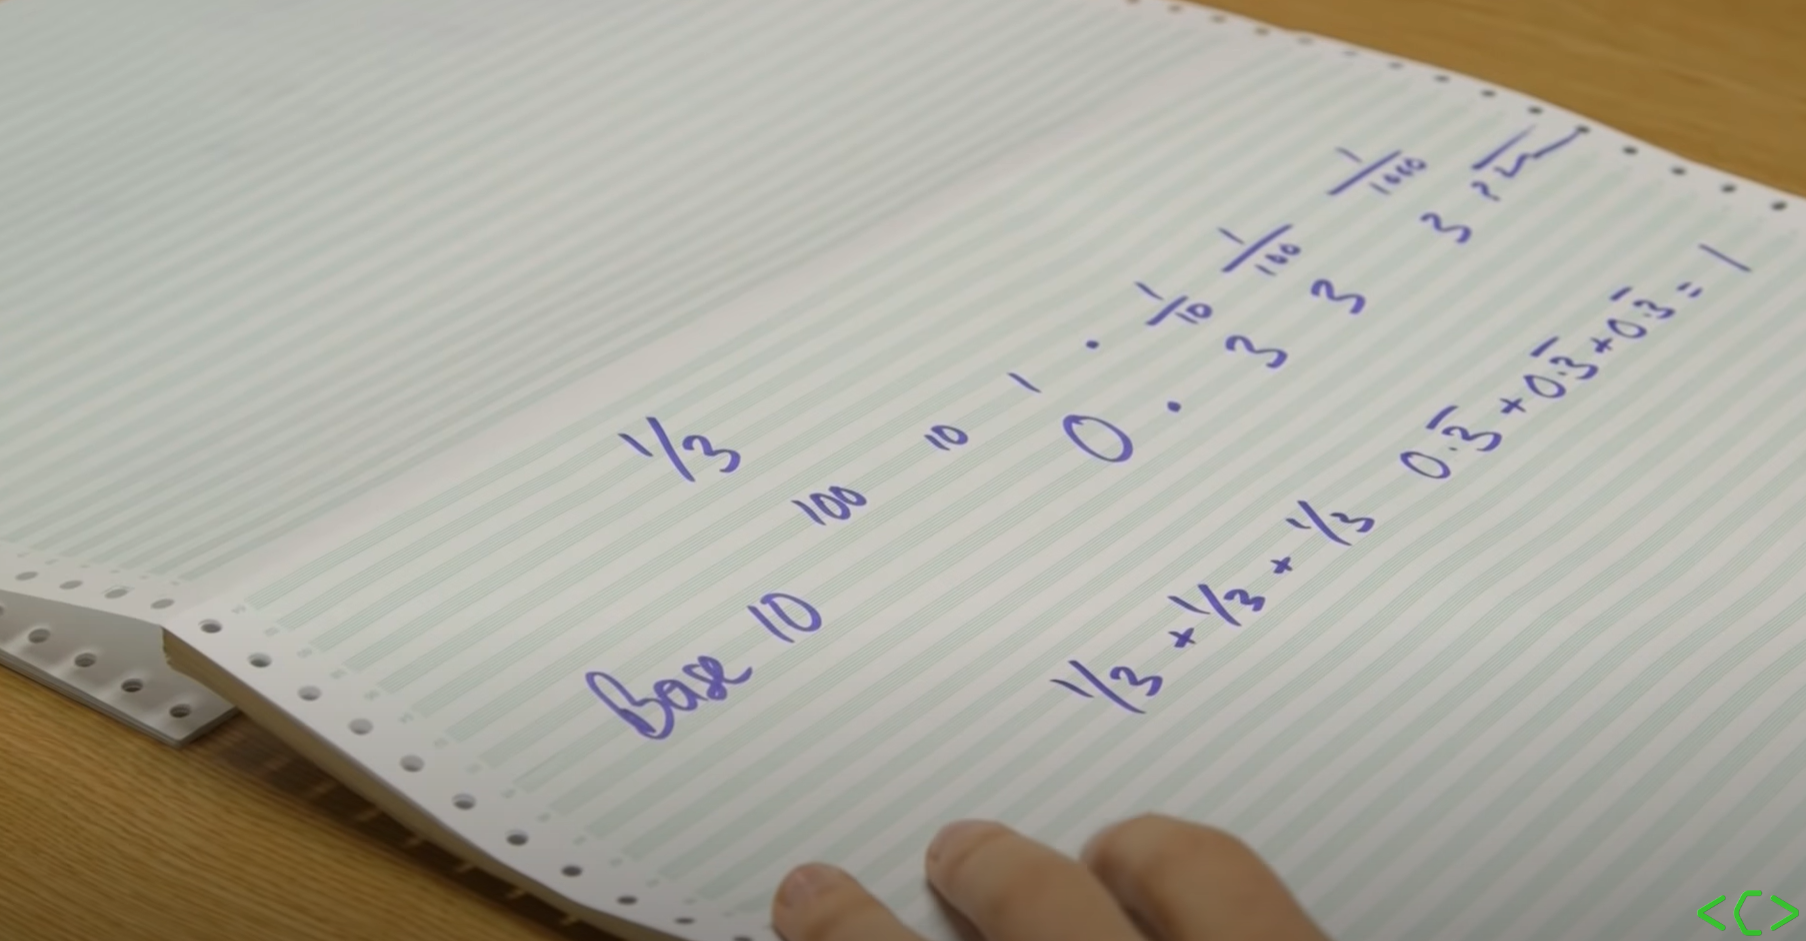 1/3
Base 10
100 10 1 . 1/10 1/100 1/1000
0 . 3 3 3
1/3 + 1/3 + 1/3 0.3̅ + 0.3̅ + 0.3̅ = 1
<C>